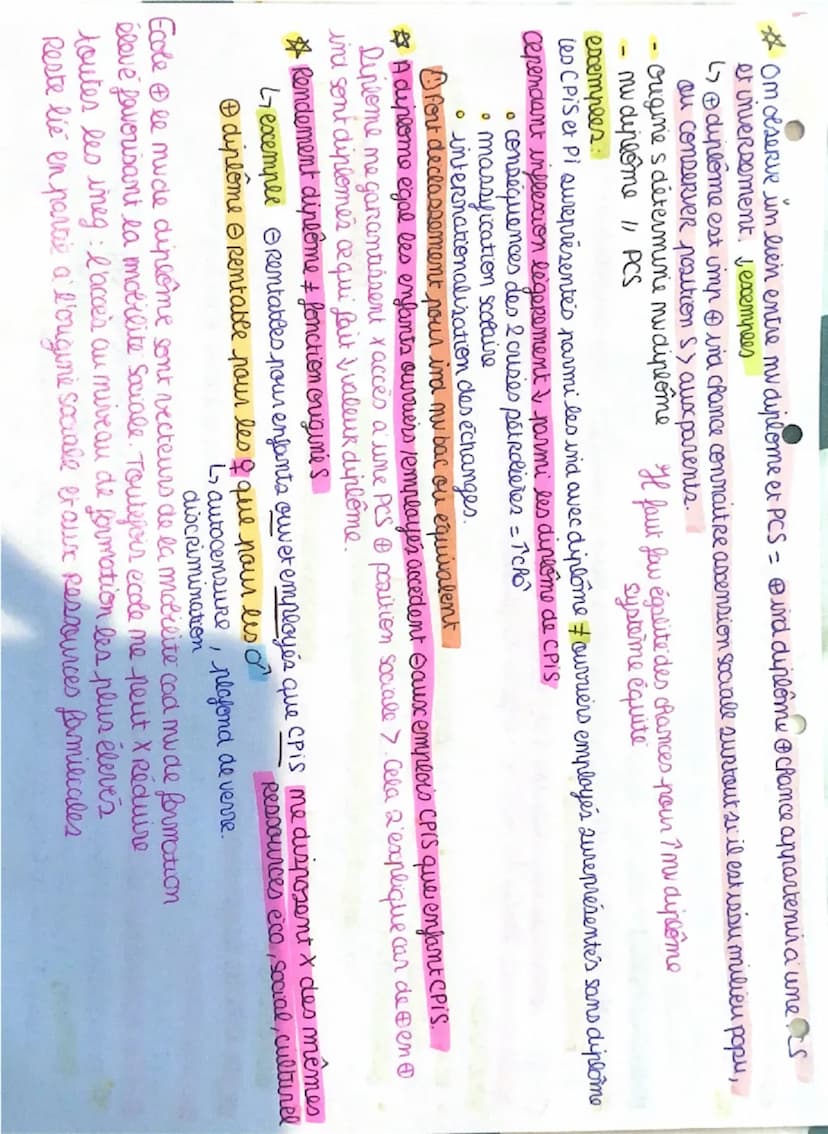 ☆ On observe un lien entre nv diplôme et PCS = ⊕ ind diplômé ⊕ chance appartenir à une PCS
et inversement. ↓ exemples
↳ ⊕ diplôme est imp ⊕ ind chance connaitre ascension sociale surtout si il est issu milieu popu,
ou conserver position S > aux parents.
- origine S détermine nv diplôme
- nv diplôme // PCS
Il faut fav égalité des chances pour ↑ nv diplôme
système équité
exemples :
Les CPIS et PI surreprésentés parmi les ind avec diplôme ≠ ouvriers employés surreprésentés sans diplôme
Cependant inflexion légèrement ↓ parmi les diplôme de CPIS
• conséquences des 2 crises pétrolières = ↑ chô
• massification scolaire
• internationalisation des échanges.
⚠ Fort déclassement pour ind nv bac ou équivalent
☆ A diplôme égal les enfants ouvriers/employés accèdent ⊖ aux emplois CPIS que enfant CPIS.
Diplôme ne garantissent x accès à une PCS ⊕ position sociale >. Cela s'explique car de ⊕ en ⊕
ind sont diplômés ce qui fait ↓ valeur diplôme.
☆ Rendement diplôme ≠ fonction origine S
↳ exemple ⊖ rentables pour enfants ouv et employés que CPIS ne disposent x des mêmes
ressources éco, social, culturel
⊕ diplôme ⊖ rentable pour les ♀ que pour les ♂
↳ autocensure, plafond de verre.
discrimination
Ecole ⊕ le nv de diplôme sont vecteurs de la mobilité cad nv de formation
élevé favorisant la mobilité sociale. Toutefois école ne peut x réduire
toutes les ineg : l'accès au niveau de formation les plus élevés
reste lié en partie à l'origine sociale et aux ressources familiales